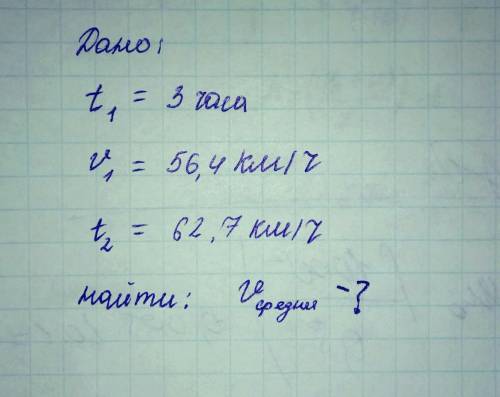 Дано:
t₁ = 3 часа
v₁ = 56,4 км/ч
t₂ = 62,7 км/ч
найти: Vсредняя - ?